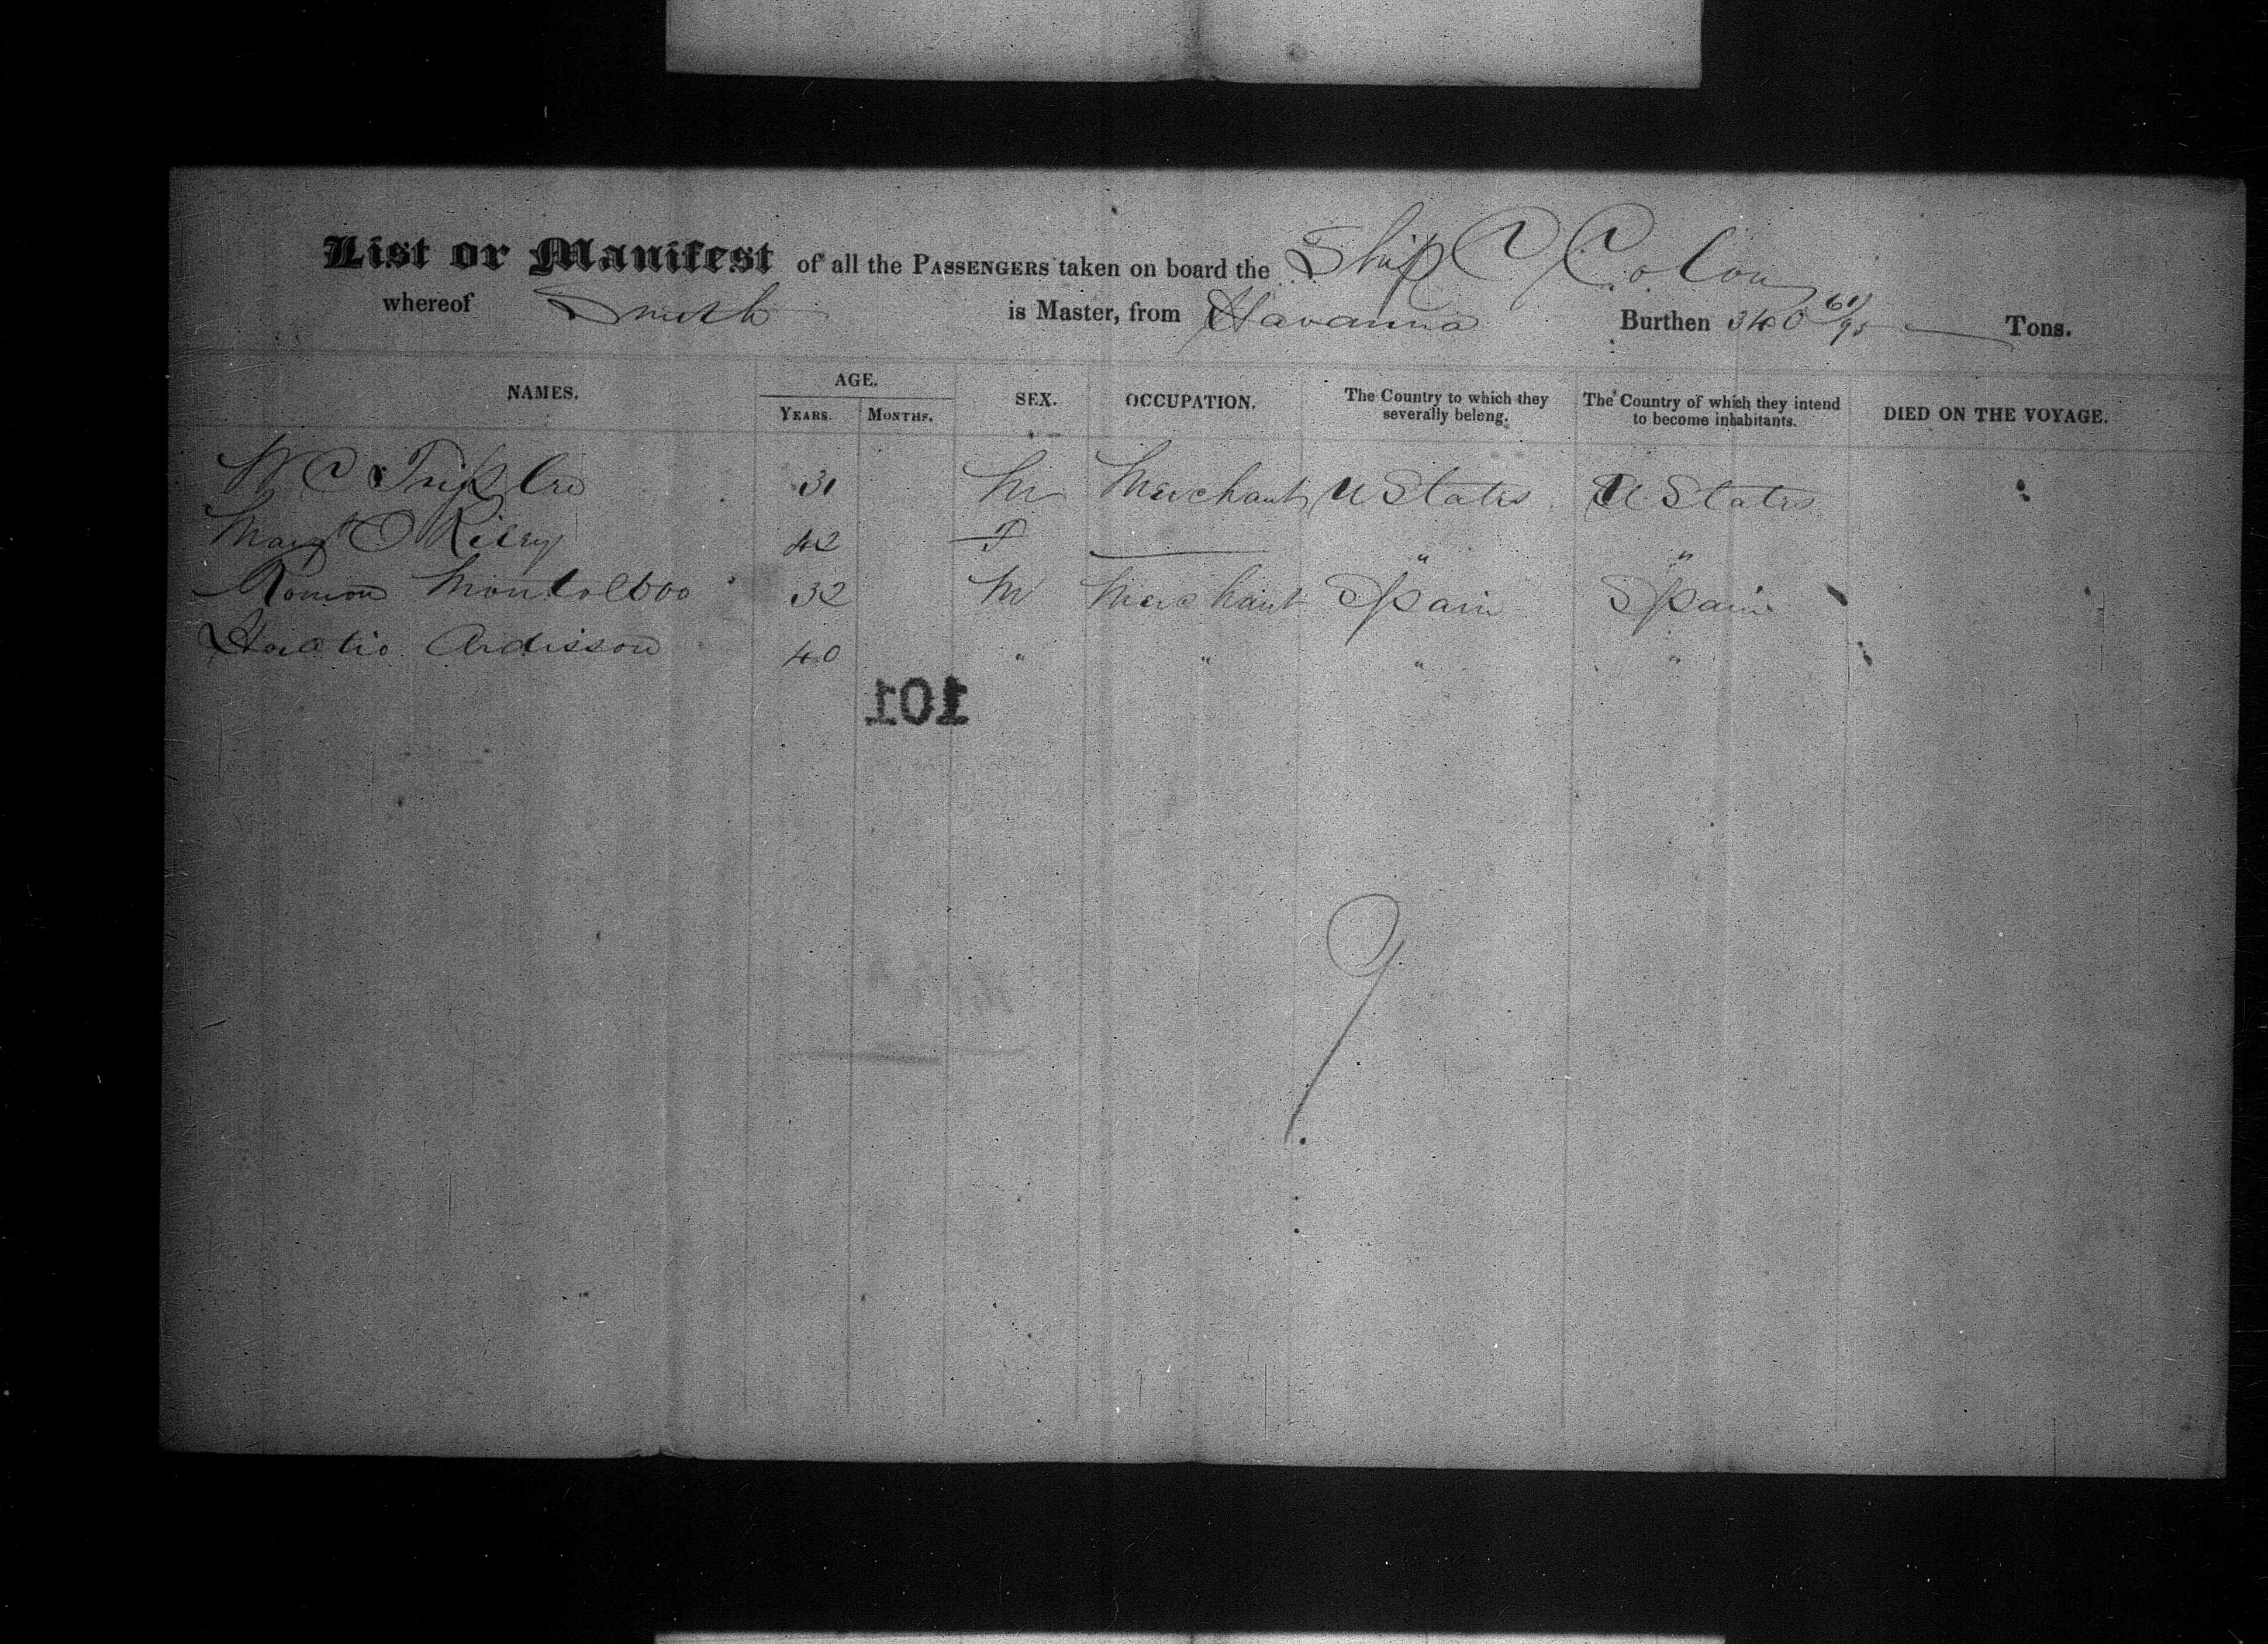 List or Manifest of all the PASSENGERS taken on board the Ship C Colon
whereof Smith is Master, from Havanna Burthen 340 61/95 Tons.
NAMES. AGE. SEX. OCCUPATION. The Country to which they severally belong. The Country of which they intend to become inhabitants. DIED ON THE VOYAGE.
YEARS. MONTHS.
W C Tripler 31 M Merchant U States U States
Margt O Riley 42 F " "
Ramon 32 M Merchant Spain Spain
Horatio Ardisson 40 " " " "
101
9